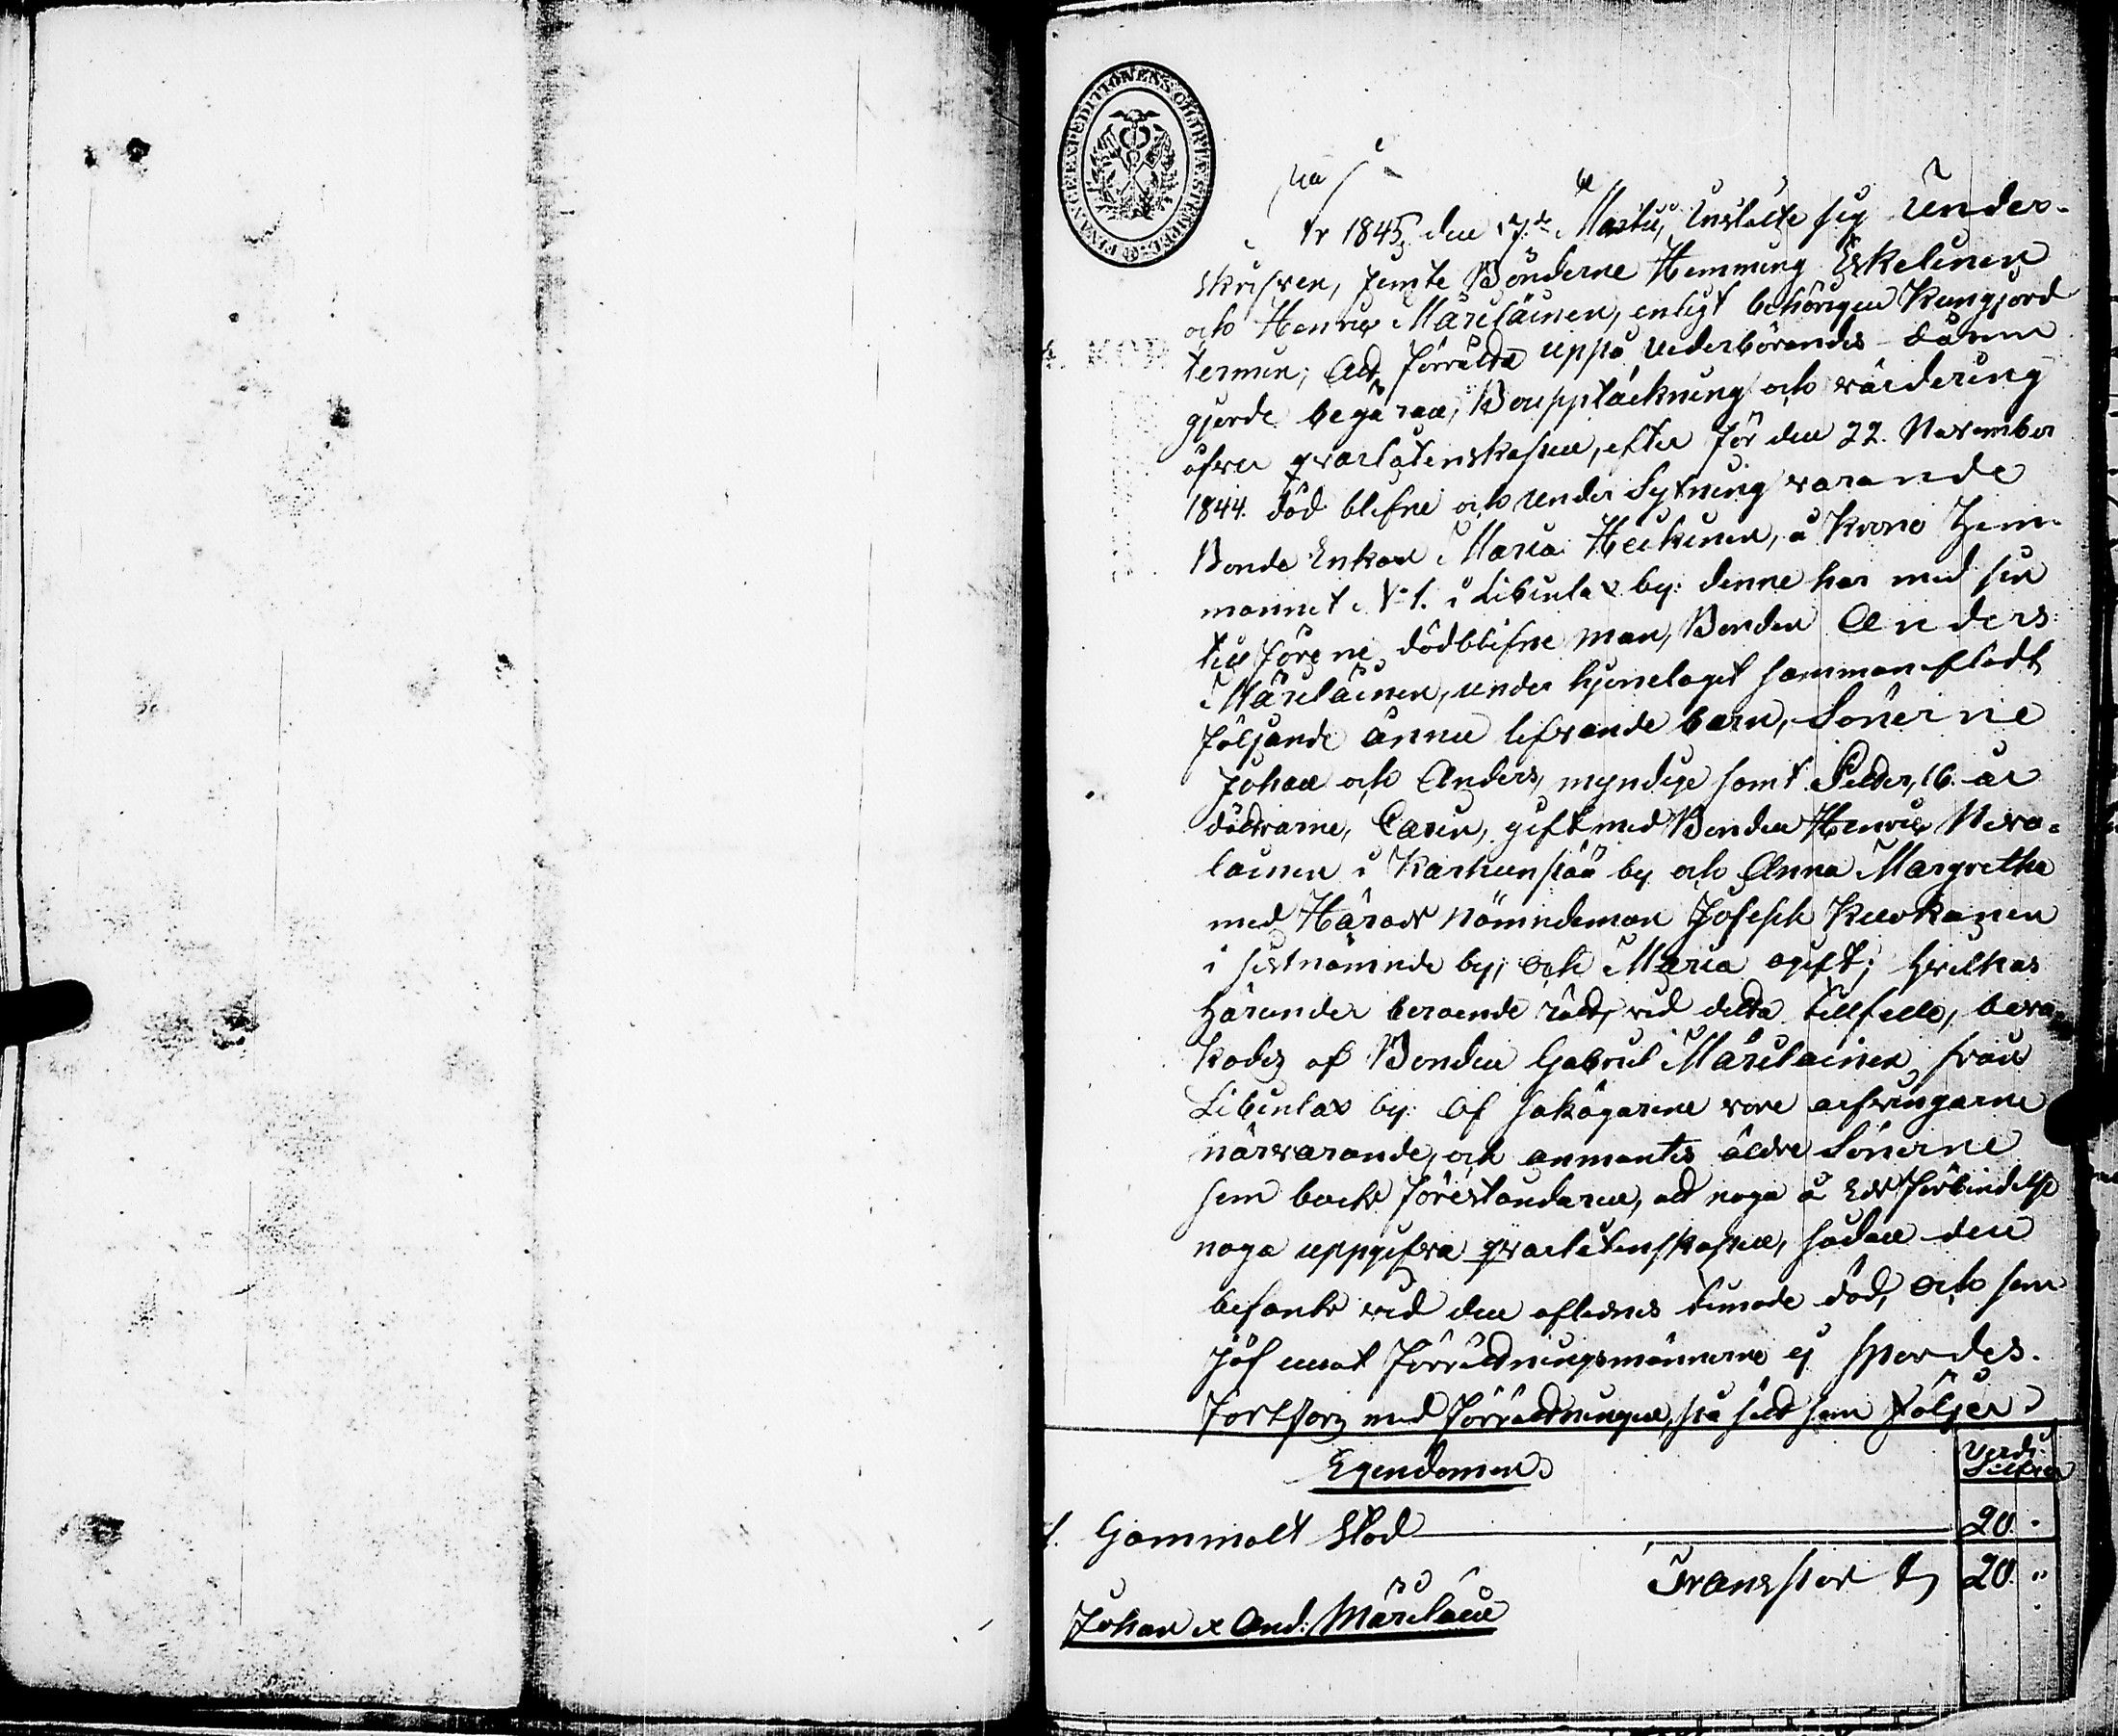 FINANCE EXPEDITIONENS CHARTÆ STEMPEL
År 1845, den 17de Martii, Instälte sig Under-
skrifven, jemte Bönderne Hemming Eskelinen
och Henric Märiläinen, enligt behörigen Kungjord
termin, att förrätta uppå vederbörandes därom
gjorde begäran, Bouppteckning och värdering
öfver qvarlåtenskapen, efter för den 22. November
1844. död blefne och under Sytning varande
Bonde Enkan Maria Heikinen, å Krono Hem-
mannet N:o 1. i Libinlax by: denne har med sin
till förene dödblefne man, Bonden Anders
Märiläinen, under hjonelaget sammanafladt
följande ännu lefvande barn, Sönerne
Johan och Anders, myndige samt Petter, 16. år
döttrarne, Carin, gift med Bonden Henric Neva-
lainen i Karhunpää by och Anna Margretha
med Härads Nämndeman Joseph Kuokanen
i sistnämnde by; och Maria ogift; hvilkas
härunder beroende rätt, vid detta tillfelle, beva-
kades af Bonden Gabriel Märiläinen från
Libinlax by: Af sakägarene vore arfvingarne
närvarande, och anmantes äldre Sönerne
som boets föreståndare, att noga å Eds förbindelse
noga uppgifva qvarlåtenskapen, sådan den
befants vid den aflednes timade död, och som
jäf emot förrättningsmännerne ej spordes.
Fortfors med förrättningen, på sätt som följer:
Egendomen
Värde Silfver
1. Gammalt Stod 20. "
Transport 20. "
Johan & And: Märiläin